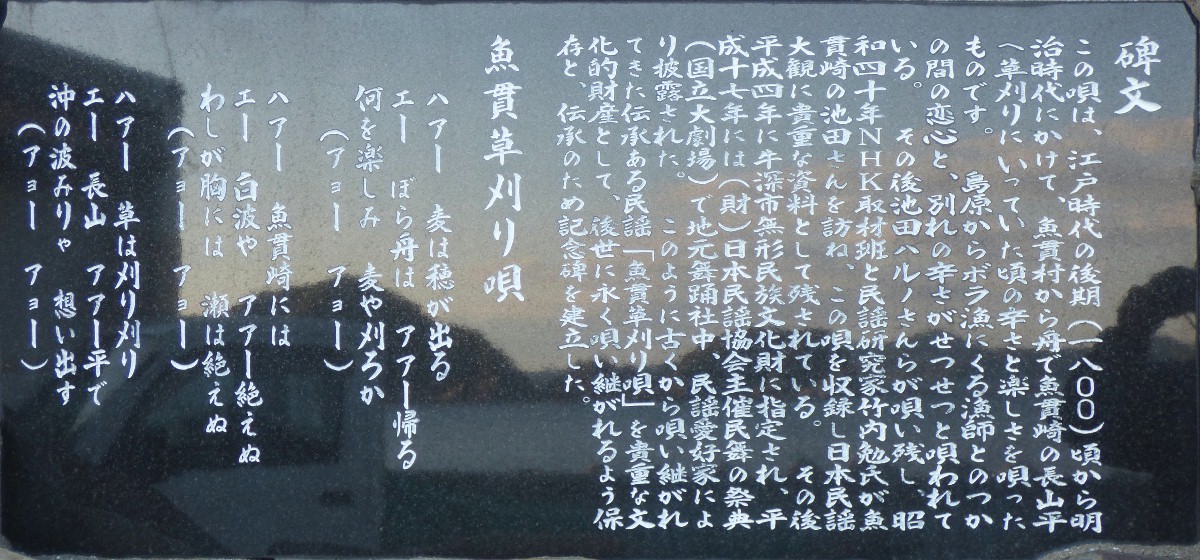 碑文
この唄は、江戸時代の後期(一八〇〇)頃から明
治時代にかけて、魚貫村から舟で魚貫崎の長山平
へ草刈りにいっていた頃の辛さと楽しさを唄った
ものです。 島原からボラ漁にくる漁師とのつか
の間の恋心と、別れの辛さがせつせつと唄われて
いる。 その後池田ハルノさんらが唄い残し、昭
和四十年NHK取材班と民謡研究家竹内勉氏が魚
貫崎の池田さんを訪ね、この唄を収録し日本民謡
大観に貴重な資料として残されている。 その後
平成四年に牛深市無形民族文化財に指定され、平
成十七年には(財)日本民謡協会主催民舞の祭典
(国立大劇場)で地元舞踊社中、民謡愛好家によ
り披露された。 このように古くから唄い継がれ
てきた伝承ある民謡「魚貫草刈り唄」を貴重な文
化的財産として、後世に永く唄い継がれるよう保
存と、伝承のため記念碑を建立した。
魚貫草刈り唄
ハアー 麦は穂が出る
エー ぼら舟は アアー帰る
何を楽しみ 麦や刈ろか
(アョー アョー)
ハアー 魚貫崎には
エー 白波や アアー絶えぬ
わしが胸には 瀬は絶えぬ
(アョー アョー)
ハアー 草は刈り刈り
エー 長山 アアー平で
沖の波みりゃ 想い出す
(アョー アョー)